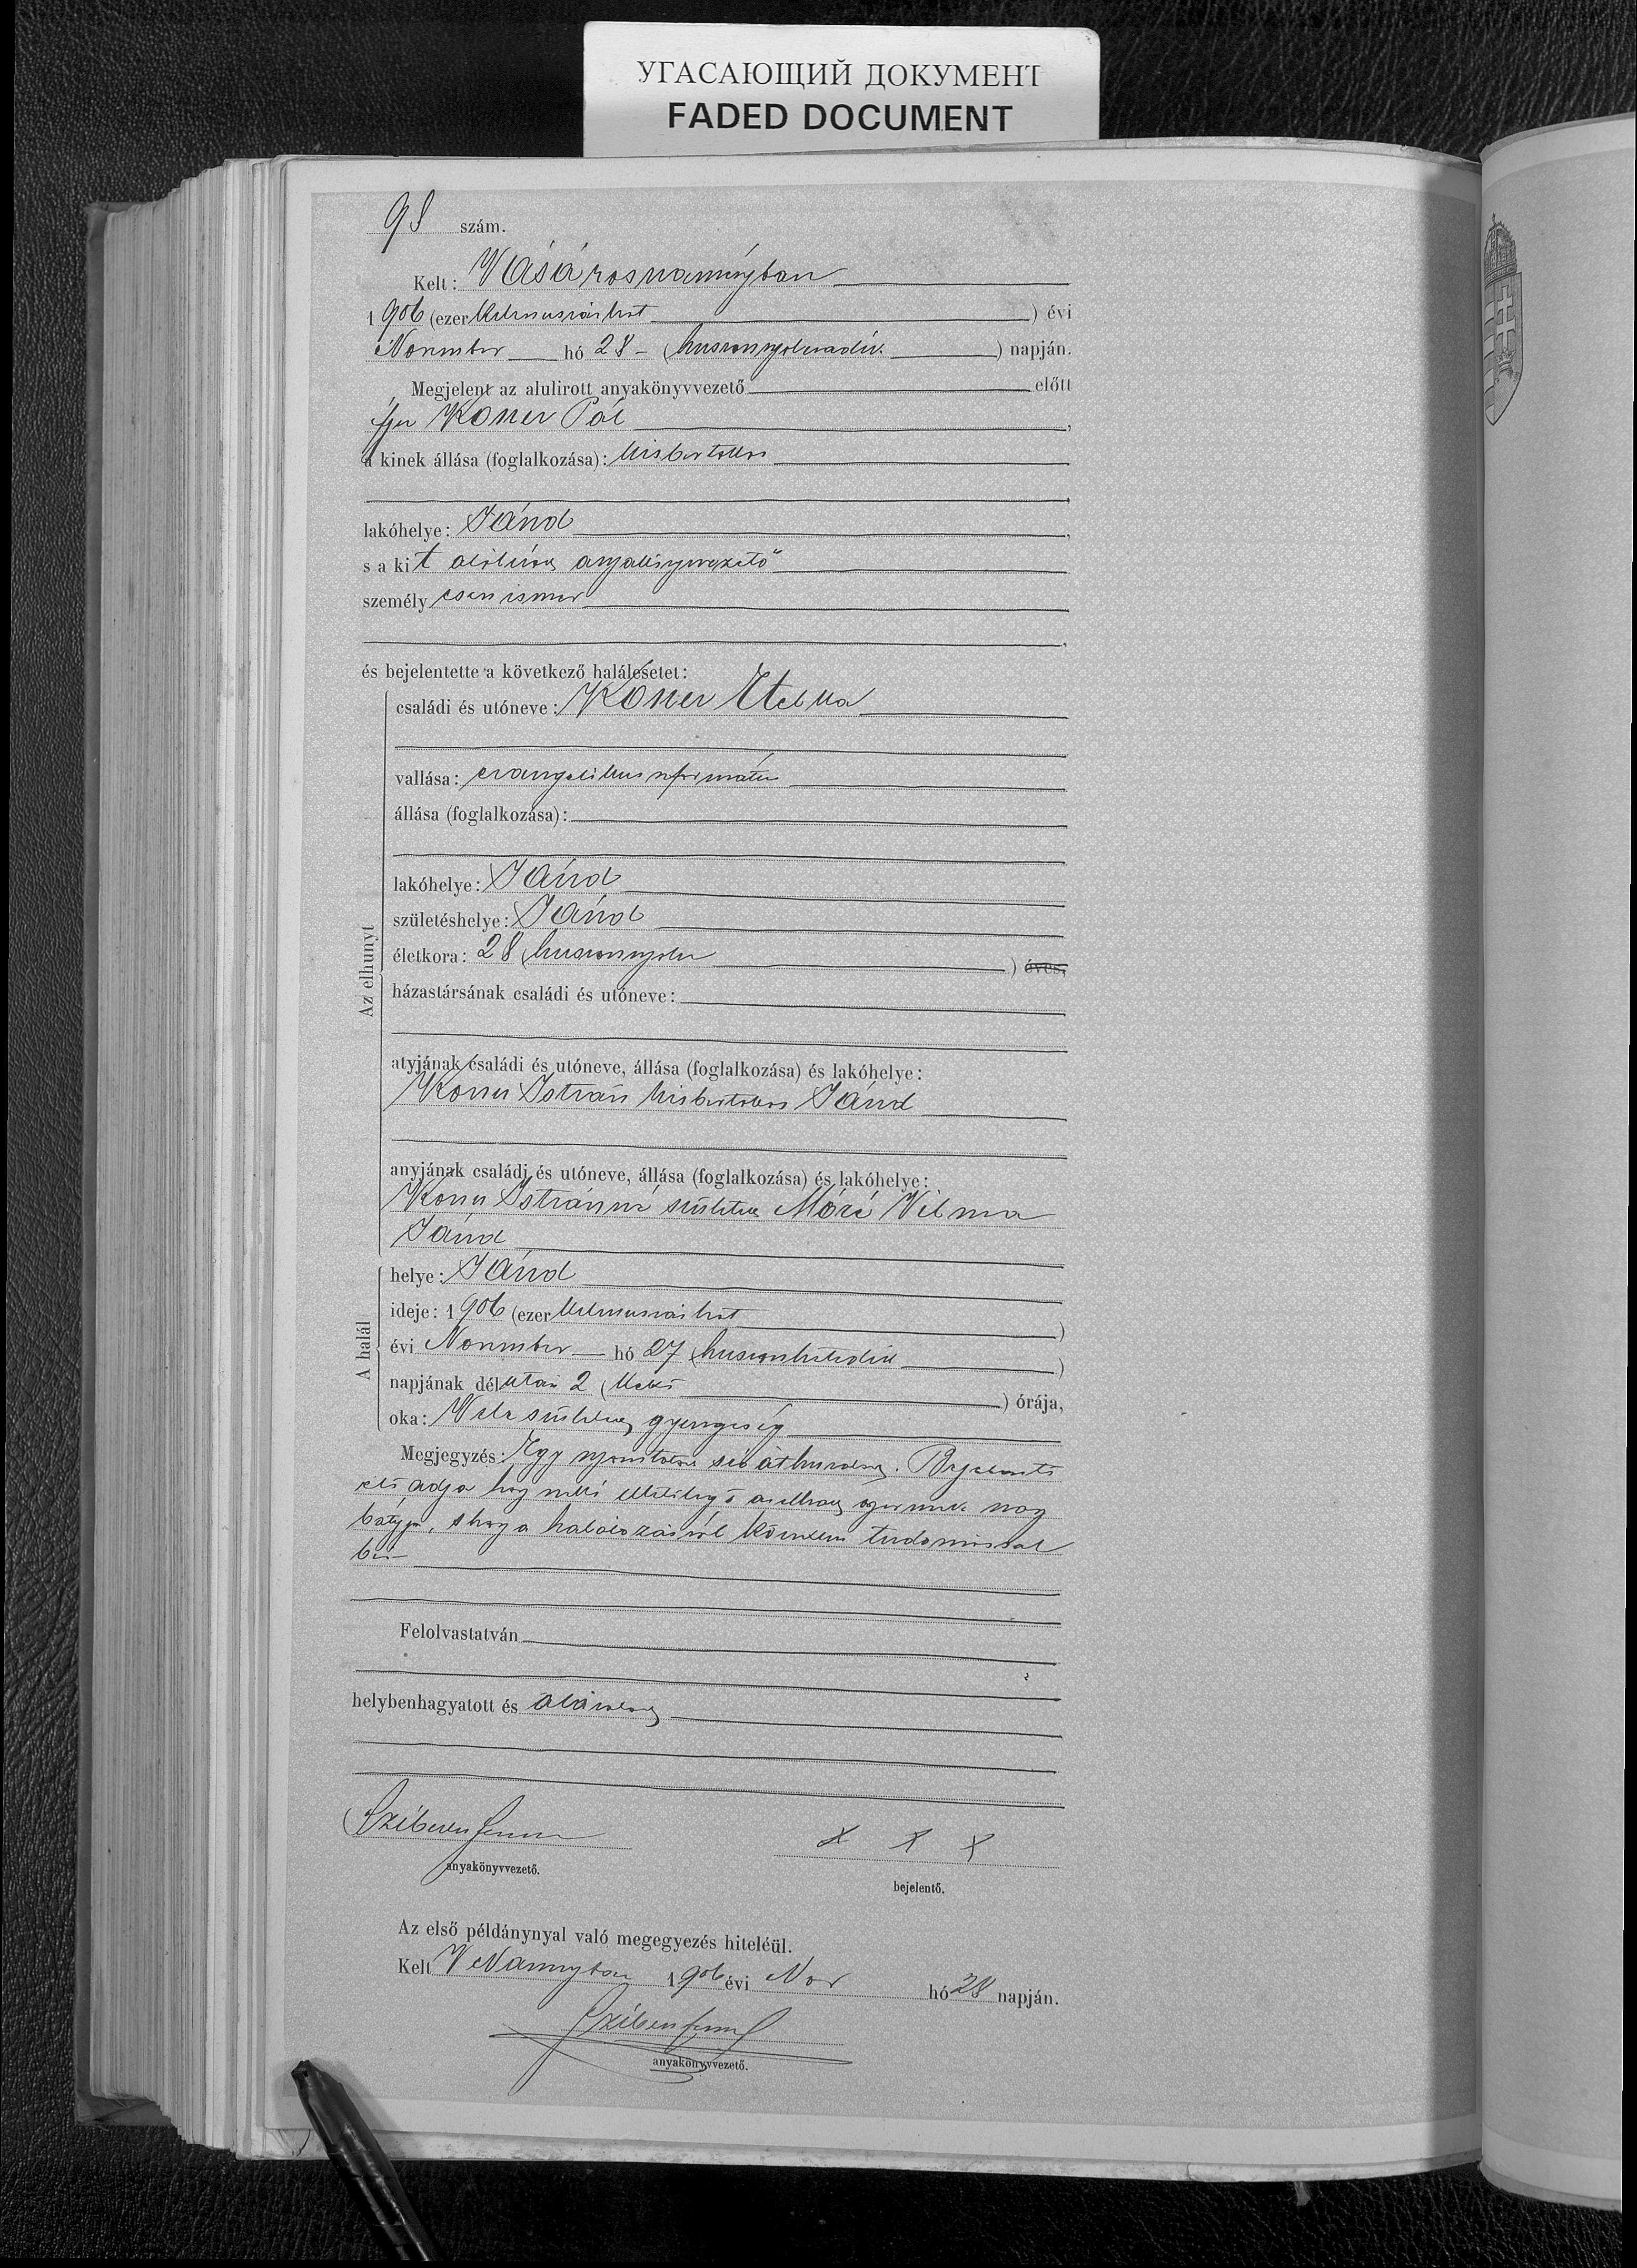 УГАСАЮЩИЙ ДОКУМЕНТ
FADED DOCUMENT
98 szám.
Kelt: Vásárosnaményban
1906 (ezer kilenczszázhat) évi
November hó 28 - (huszonnyolczadik) napján.
Megjelent az alulirott anyakönyvvezető előtt
Pál
a kinek állása (foglalkozása): kisbirtokos
lakóhelye: Jánd
s a kit alólirott anyakönyvvezető
személyesen ismer
és bejelentette a következő halálesetet:
Az elhunyt
családi és utóneve: Etelka
vallása: evangelikus református
állása (foglalkozása):
lakóhelye: Jánd
születéshelye: Jánd
életkora: 28 (huszonnyolcz) éves,
házastársának családi és utóneve:
atyjának családi és utóneve, állása (foglalkozása) és lakóhelye:
István kisbirtokos Jánd
anyjának családi és utóneve, állása (foglalkozása) és lakóhelye:
Istvánné született Móré Vilma
Jánd
A halál
helye: Jánd
ideje: 1906 (ezer kilenczszázhat)
évi November hó 27 (huszonhetedik)
napjának délután 2 (kettő) órája,
oka: Vele született gyengeség
Megjegyzés: Egy nyomtatott szó áthúzva. Bejelentő
elő adja hogy ő az elhalt gyermek nagy
bátyja, s hogy a halálozásról közvetlen tudomással
bir -
Felolvastatván
helybenhagyatott és aláiratott
anyakönyvvezető.
x x x
bejelentő.
Az első példánynyal való megegyezés hiteléül.
Kelt VNaményban 1906 évi Nov hó 28 napján.
anyakönyvvezető.